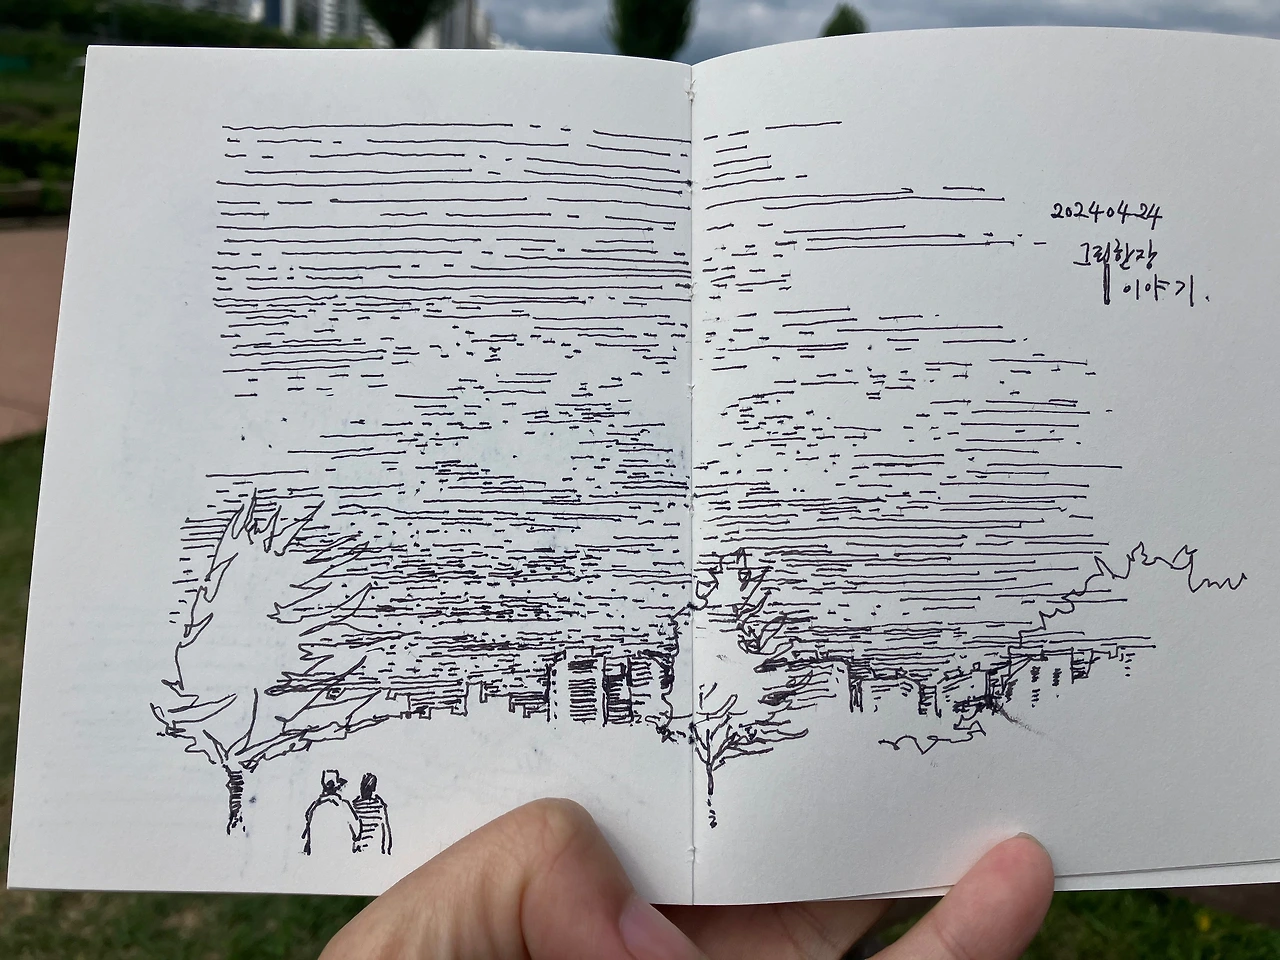 20240424
그림한장
이야기.